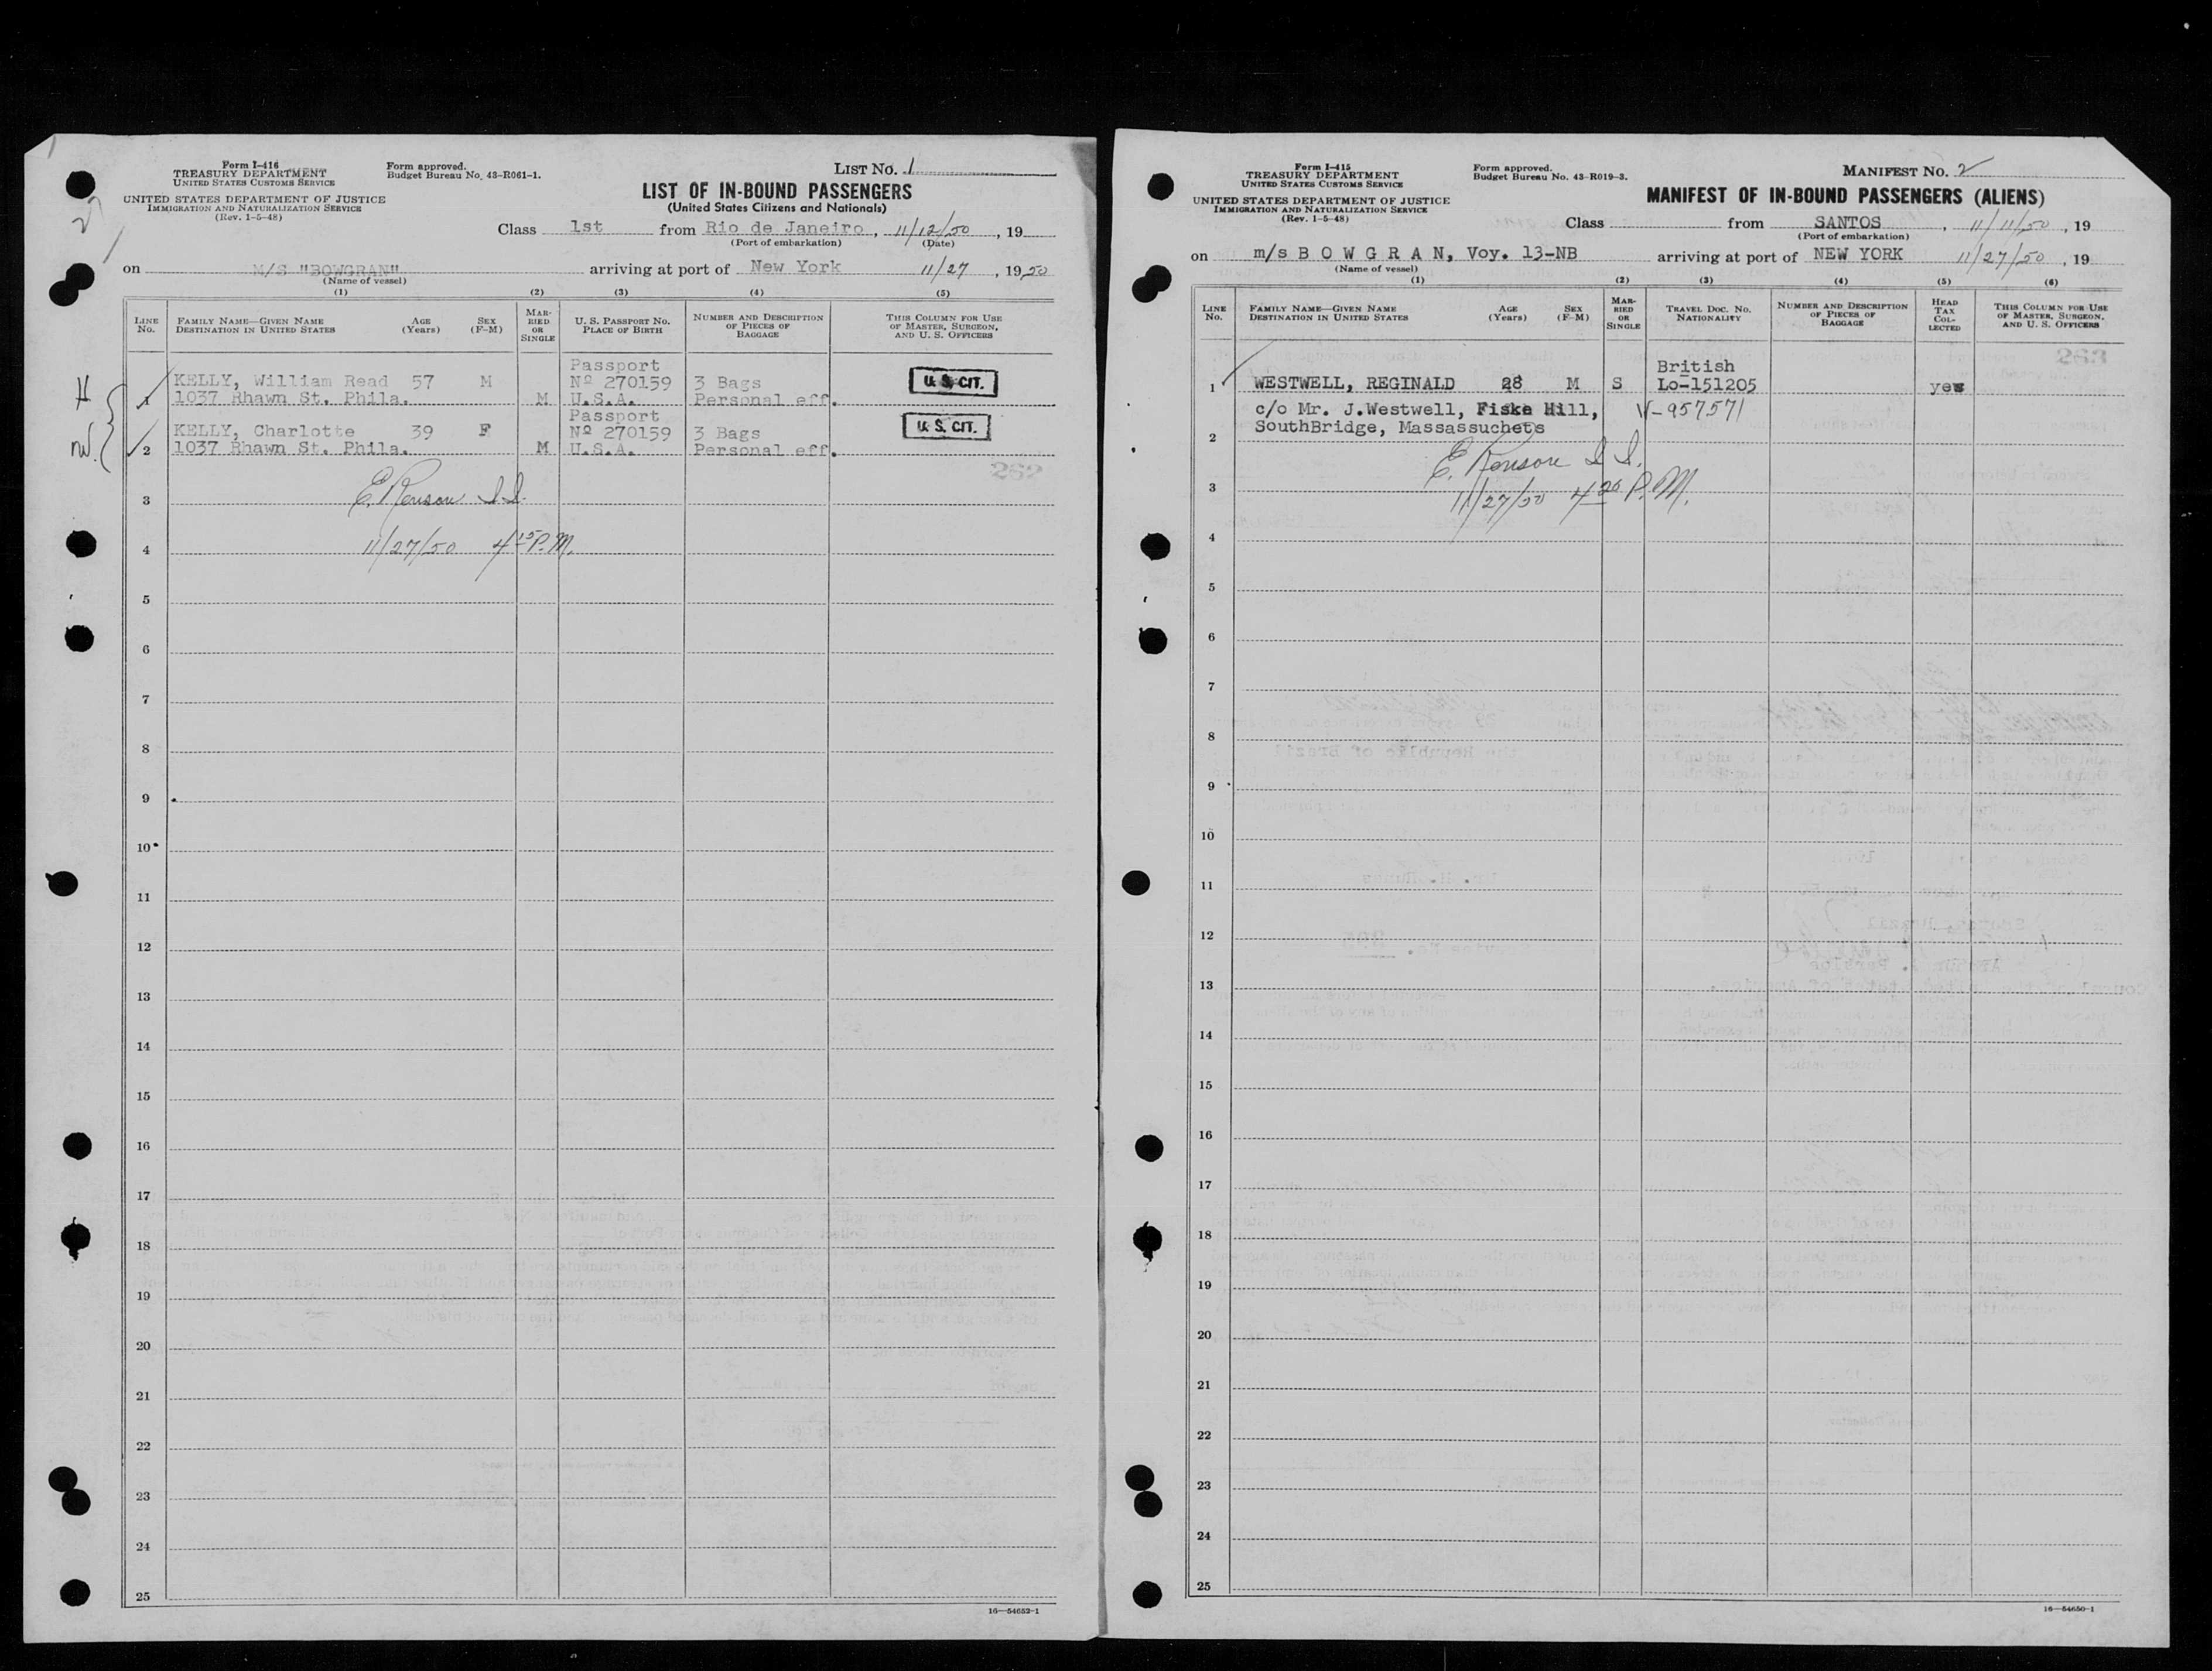 Form I-416
TREASURY DEPARTMENT
UNITED STATES CUSTOMS SERVICE
UNITED STATES DEPARTMENT OF JUSTICE
IMMIGRATION AND NATURALIZATION SERVICE
(Rev. 1-5-48)
Form approved.
Budget Bureau No. 43-R061-1.
LIST NO. 1
LIST OF IN-BOUND PASSENGERS
(United States Citizens and Nationals)
Class 1st from Rio de Janeiro, 11/12/50, 19
(Port of embarkation) (Date)
on M/S "BOWGRAN" arriving at port of New York 11/27, 1950
(Name of vessel)
(1) (2) (3) (4) (5)
LINE NO.
FAMILY NAME—GIVEN NAME
DESTINATION IN UNITED STATES
AGE (Years)
SEX (F-M)
MARRIED OR SINGLE
U. S. PASSPORT NO.
PLACE OF BIRTH
NUMBER AND DESCRIPTION OF PIECES OF BAGGAGE
THIS COLUMN FOR USE OF MASTER, SURGEON, AND U. S. OFFICERS
H
W.
Passport
KELLY, William Read 57 M Nº 270159 3 Bags U. S. CIT.
1 1037 Rhawn St. Phila. M U.S.A. Personal eff.
Passport
KELLY, Charlotte 39 F Nº 270159 3 Bags U. S. CIT.
2 1037 Rhawn St. Phila. M U.S.A. Personal eff.
262
3 E. Renson I.I.
4 11/27/50 4 15 P.M.
5
6
7
8
9
10
11
12
13
14
15
16
17
18
19
20
21
22
23
24
25
16—54652-1
Form I-415
TREASURY DEPARTMENT
UNITED STATES CUSTOMS SERVICE
UNITED STATES DEPARTMENT OF JUSTICE
IMMIGRATION AND NATURALIZATION SERVICE
(Rev. 1-5-48)
Form approved.
Budget Bureau No. 43-R019-3.
MANIFEST NO. 2
MANIFEST OF IN-BOUND PASSENGERS (ALIENS)
Class from SANTOS, 11/11/50, 19
(Port of embarkation)
on m/s B O W G R A N, Voy. 13-NB arriving at port of NEW YORK 11/27/50, 19
(Name of vessel)
(1) (2) (3) (4) (5) (6)
LINE NO.
FAMILY NAME—GIVEN NAME
DESTINATION IN UNITED STATES
AGE (Years)
SEX (F-M)
MARRIED OR SINGLE
TRAVEL DOC. NO.
NATIONALITY
NUMBER AND DESCRIPTION OF PIECES OF BAGGAGE
HEAD TAX COLLECTED
THIS COLUMN FOR USE OF MASTER, SURGEON, AND U. S. OFFICERS
263
British
1 WESTWELL, REGINALD 28 M S Lo-151205 yes
c/o Mr. J.Westwell, Fiske Hill, V-957571
2 SouthBridge, Massassuchets
E. Renson I.I.
3 11/27/50 4 20 P.M.
4
5
6
7
8
9
10
11
12
13
14
15
16
17
18
19
20
21
22
23
24
25
16—54650-1